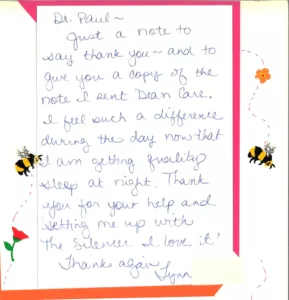 Dr. Paul ~
Just a note to
say thank you ~ and to
give you a copy of the
note I sent Dean Care.
I feel such a difference
during the day now that
I am getting quality
sleep at night. Thank
you for your help and
setting me up with
The Silencer. I love it!
Thanks again,
Lynn